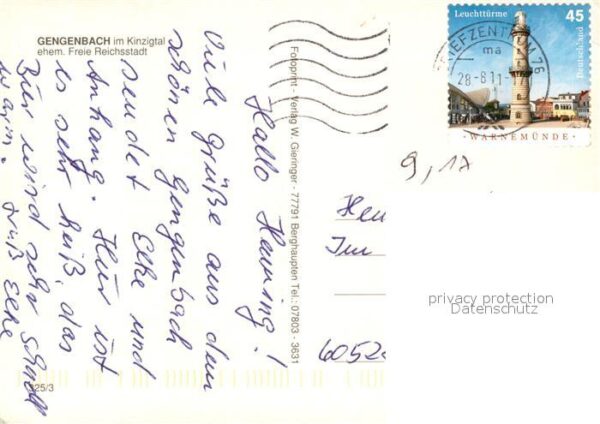 GENGENBACH im Kinzigtal
ehem. Freie Reichsstadt
Hallo Henning!
Viele Grüße aus dem
schönen Gengenbach
sendet Elke und
Anhang. Hier ist
es sehr heiß, das
Bier wird sehr schnell
warm.
Gruß Elke
325/3
Fotoprint - Verlag W. Gieringer - 77791 Berghaupten Tel.: 07803 - 3631
Leuchttürme 45
Deutschland
WARNEMÜNDE
BRIEFZENTRUM 76
ma
28-8.11-
9,17
Hen
Im
6052
privacy protection
Datenschutz